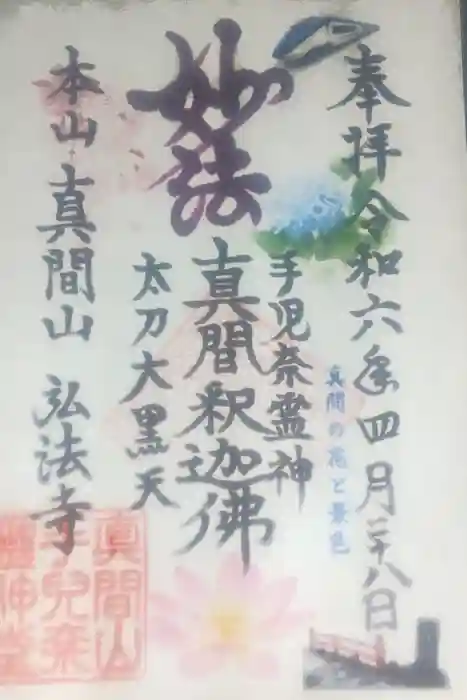 奉拝 令和六年四月二十八日
真間の花と景色
妙法
手児奈霊神
真間釈迦佛
太刀大黒天
本山 真間山 弘法寺
真間山
手兒奈
靈神堂